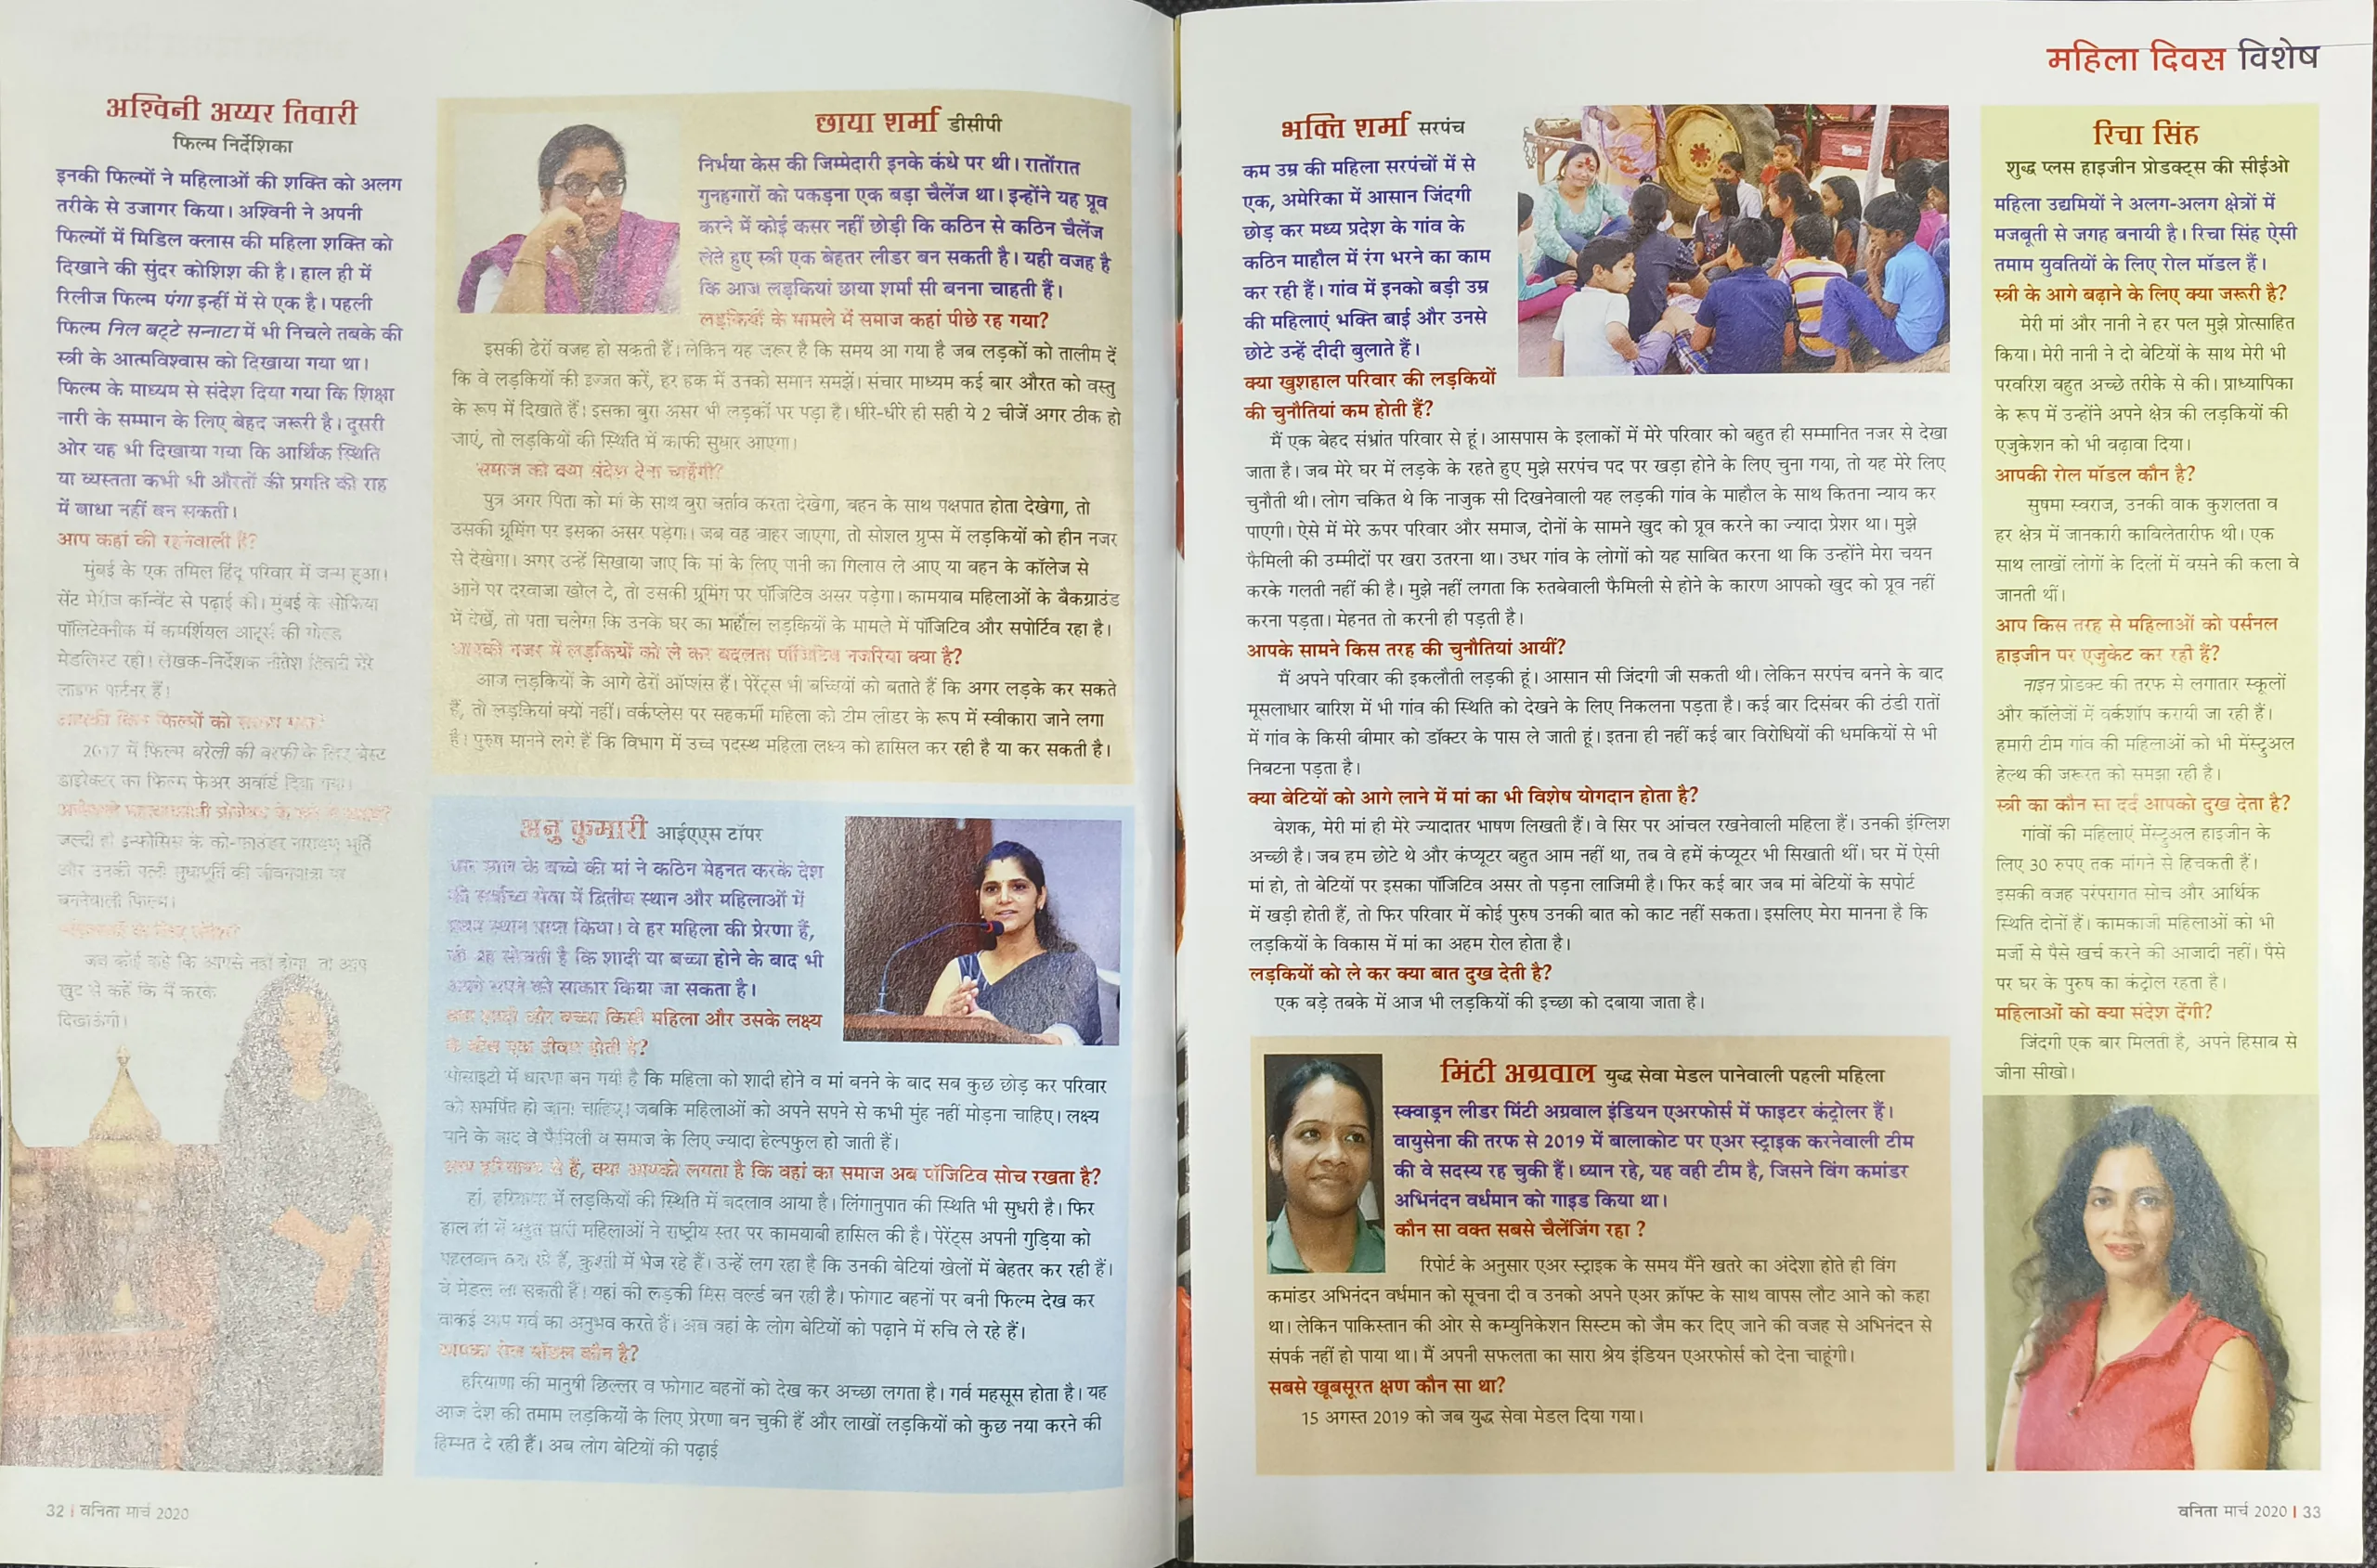 अश्विनी अय्यर तिवारी
फिल्म निर्देशिका
इनकी फिल्मों ने महिलाओं की शक्ति को अलग
तरीके से उजागर किया। अश्विनी ने अपनी
फिल्मों में मिडिल क्लास की महिला शक्ति को
दिखाने की सुंदर कोशिश की है। हाल ही में
रिलीज फिल्म पंगा इन्हीं में से एक है। पहली
फिल्म निल बट्टे सन्नाटा में भी निचले तबके की
स्त्री के आत्मविश्वास को दिखाया गया था।
फिल्म के माध्यम से संदेश दिया गया कि शिक्षा
नारी के सम्मान के लिए बेहद जरूरी है। दूसरी
ओर यह भी दिखाया गया कि आर्थिक स्थिति
या व्यस्तता कभी भी औरतों की प्रगति की राह
में बाधा नहीं बन सकती।
आप कहां की रहनेवाली हैं?
मुंबई के एक तमिल हिंदू परिवार में जन्म हुआ।
सेंट मेरीज कॉन्वेंट से पढ़ाई की। मुंबई के सोफिया
पॉलिटेक्नीक में कमर्शियल आर्ट्स की गोल्ड
मेडलिस्ट रही। लेखक-निर्देशक नीतेश तिवारी मेरे
लाइफ पार्टनर हैं।
आपकी किन फिल्मों को
2017 में फिल्म बरेली की बरफी के लिए बेस्ट
डाइरेक्टर का फिल्म फेअर अवॉर्ड दिया गया।
जल्दी ही इन्फोसिस के को-फाउंडर नारायण मूर्ति
और उनकी पत्नी सुधामूर्ति की जीवनयात्रा पर
बननेवाली फिल्म।
जब कोई कहे कि आपसे नहीं होगा, तो आप
खुद से कहें कि मैं करके
दिखाऊंगी।
छाया शर्मा डीसीपी
निर्भया केस की जिम्मेदारी इनके कंधे पर थी। रातोंरात
गुनहगारों को पकड़ना एक बड़ा चैलेंज था। इन्होंने यह प्रूव
करने में कोई कसर नहीं छोड़ी कि कठिन से कठिन चैलेंज
लेते हुए स्त्री एक बेहतर लीडर बन सकती है। यही वजह है
कि आज लड़कियां छाया शर्मा सी बनना चाहती हैं।
लड़कियों के मामले में समाज कहां पीछे रह गया?
इसकी ढेरों वजह हो सकती हैं। लेकिन यह जरूर है कि समय आ गया है जब लड़कों को तालीम दें
कि वे लड़कियों की इज्जत करें, हर हक में उनको समान समझें। संचार माध्यम कई बार औरत को वस्तु
के रूप में दिखाते हैं। इसका बुरा असर भी लड़कों पर पड़ा है। धीरे-धीरे ही सही ये 2 चीजें अगर ठीक हो
जाएं, तो लड़कियों की स्थिति में काफी सुधार आएगा।
समाज को क्या संदेश देना चाहेंगी?
पुत्र अगर पिता को मां के साथ बुरा बर्ताव करता देखेगा, बहन के साथ पक्षपात होता देखेगा, तो
उसकी ग्रूमिंग पर इसका असर पड़ेगा। जब वह बाहर जाएगा, तो सोशल ग्रुप्स में लड़कियों को हीन नजर
से देखेगा। अगर उन्हें सिखाया जाए कि मां के लिए पानी का गिलास ले आए या बहन के कॉलेज से
आने पर दरवाजा खोल दे, तो उसकी ग्रूमिंग पर पॉजिटिव असर पड़ेगा। कामयाब महिलाओं के बैकग्राउंड
में देखें, तो पता चलेगा कि उनके घर का माहौल लड़कियों के मामले में पॉजिटिव और सपोर्टिव रहा है।
आपकी नजर में लड़कियों को ले कर बदलता पॉजिटिव नजरिया क्या है?
आज लड़कियों के आगे ढेरों ऑप्शंस हैं। पेरेंट्स भी बच्चियों को बताते हैं कि अगर लड़के कर सकते
हैं, तो लड़कियां क्यों नहीं। वर्कप्लेस पर सहकर्मी महिला को टीम लीडर के रूप में स्वीकारा जाने लगा
है। पुरुष मानने लगे हैं कि विभाग में उच्च पदस्थ महिला लक्ष्य को हासिल कर रही है या कर सकती है।
अनु कुमारी आईएएस टॉपर
के बच्चे की मां ने कठिन मेहनत करके देश
की सर्वोच्च सेवा में द्वितीय स्थान और महिलाओं में
प्रथम स्थान प्राप्त किया। वे हर महिला की प्रेरणा हैं,
जो यह सोचती है कि शादी या बच्चा होने के बाद भी
अपने सपने को साकार किया जा सकता है।
क्या शादी और बच्चा किसी महिला और उसके लक्ष्य
के बीच एक दीवार होती है?
सोसाइटी में धारणा बन गयी है कि महिला को शादी होने व मां बनने के बाद सब कुछ छोड़ कर परिवार
को समर्पित हो जाना चाहिए। जबकि महिलाओं को अपने सपने से कभी मुंह नहीं मोड़ना चाहिए। लक्ष्य
पाने के बाद वे फैमिली व समाज के लिए ज्यादा हेल्पफुल हो जाती हैं।
आप हरियाणा से हैं, क्या आपको लगता है कि वहां का समाज अब पॉजिटिव सोच रखता है?
हां, हरियाणा में लड़कियों की स्थिति में बदलाव आया है। लिंगानुपात की स्थिति भी सुधरी है। फिर
हाल ही में बहुत सारी महिलाओं ने राष्ट्रीय स्तर पर कामयाबी हासिल की है। पेरेंट्स अपनी गुड़िया को
पहलवान बना रहे हैं, कुश्ती में भेज रहे हैं। उन्हें लग रहा है कि उनकी बेटियां खेलों में बेहतर कर रही हैं।
वे मेडल ला सकती हैं। यहां की लड़की मिस वर्ल्ड बन रही है। फोगाट बहनों पर बनी फिल्म देख कर
वाकई आप गर्व का अनुभव करते हैं। अब वहां के लोग बेटियों को पढ़ाने में रुचि ले रहे हैं।
आपका रोल मॉडल कौन है?
हरियाणा की मानुषी छिल्लर व फोगाट बहनों को देख कर अच्छा लगता है। गर्व महसूस होता है। यह
आज देश की तमाम लड़कियों के लिए प्रेरणा बन चुकी हैं और लाखों लड़कियों को कुछ नया करने की
हिम्मत दे रही हैं। अब लोग बेटियों की पढ़ाई
32 | वनिता मार्च 2020
महिला दिवस विशेष
भक्ति शर्मा सरपंच
कम उम्र की महिला सरपंचों में से
एक, अमेरिका में आसान जिंदगी
छोड़ कर मध्य प्रदेश के गांव के
कठिन माहौल में रंग भरने का काम
कर रही हैं। गांव में इनको बड़ी उम्र
की महिलाएं भक्ति बाई और उनसे
छोटे उन्हें दीदी बुलाते हैं।
क्या खुशहाल परिवार की लड़कियों
की चुनौतियां कम होती हैं?
मैं एक बेहद संभ्रांत परिवार से हूं। आसपास के इलाकों में मेरे परिवार को बहुत ही सम्मानित नजर से देखा
जाता है। जब मेरे घर में लड़के के रहते हुए मुझे सरपंच पद पर खड़ा होने के लिए चुना गया, तो यह मेरे लिए
चुनौती थी। लोग चकित थे कि नाजुक सी दिखनेवाली यह लड़की गांव के माहौल के साथ कितना न्याय कर
पाएगी। ऐसे में मेरे ऊपर परिवार और समाज, दोनों के सामने खुद को प्रूव करने का ज्यादा प्रेशर था। मुझे
फैमिली की उम्मीदों पर खरा उतरना था। उधर गांव के लोगों को यह साबित करना था कि उन्होंने मेरा चयन
करके गलती नहीं की है। मुझे नहीं लगता कि रुतबेवाली फैमिली से होने के कारण आपको खुद को प्रूव नहीं
करना पड़ता। मेहनत तो करनी ही पड़ती है।
आपके सामने किस तरह की चुनौतियां आयीं?
मैं अपने परिवार की इकलौती लड़की हूं। आसान सी जिंदगी जी सकती थी। लेकिन सरपंच बनने के बाद
मूसलाधार बारिश में भी गांव की स्थिति को देखने के लिए निकलना पड़ता है। कई बार दिसंबर की ठंडी रातों
में गांव के किसी बीमार को डॉक्टर के पास ले जाती हूं। इतना ही नहीं कई बार विरोधियों की धमकियों से भी
निबटना पड़ता है।
क्या बेटियों को आगे लाने में मां का भी विशेष योगदान होता है?
बेशक, मेरी मां ही मेरे ज्यादातर भाषण लिखती हैं। वे सिर पर आंचल रखनेवाली महिला हैं। उनकी इंग्लिश
अच्छी है। जब हम छोटे थे और कंप्यूटर बहुत आम नहीं था, तब वे हमें कंप्यूटर भी सिखाती थीं। घर में ऐसी
मां हो, तो बेटियों पर इसका पॉजिटिव असर तो पड़ना लाजिमी है। फिर कई बार जब मां बेटियों के सपोर्ट
में खड़ी होती हैं, तो फिर परिवार में कोई पुरुष उनकी बात को काट नहीं सकता। इसलिए मेरा मानना है कि
लड़कियों के विकास में मां का अहम रोल होता है।
लड़कियों को ले कर क्या बात दुख देती है?
एक बड़े तबके में आज भी लड़कियों की इच्छा को दबाया जाता है।
मिंटी अग्रवाल युद्ध सेवा मेडल पानेवाली पहली महिला
स्क्वाड्रन लीडर मिंटी अग्रवाल इंडियन एअरफोर्स में फाइटर कंट्रोलर हैं।
वायुसेना की तरफ से 2019 में बालाकोट पर एअर स्ट्राइक करनेवाली टीम
की वे सदस्य रह चुकी हैं। ध्यान रहे, यह वही टीम है, जिसने विंग कमांडर
अभिनंदन वर्धमान को गाइड किया था।
कौन सा वक्त सबसे चैलेंजिंग रहा ?
रिपोर्ट के अनुसार एअर स्ट्राइक के समय मैंने खतरे का अंदेशा होते ही विंग
कमांडर अभिनंदन वर्धमान को सूचना दी व उनको अपने एअर क्रॉफ्ट के साथ वापस लौट आने को कहा
था। लेकिन पाकिस्तान की ओर से कम्युनिकेशन सिस्टम को जैम कर दिए जाने की वजह से अभिनंदन से
संपर्क नहीं हो पाया था। मैं अपनी सफलता का सारा श्रेय इंडियन एअरफोर्स को देना चाहूंगी।
सबसे खूबसूरत क्षण कौन सा था?
15 अगस्त 2019 को जब युद्ध सेवा मेडल दिया गया।
रिचा सिंह
शुद्ध प्लस हाइजीन प्रोडक्ट्स की सीईओ
महिला उद्यमियों ने अलग-अलग क्षेत्रों में
मजबूती से जगह बनायी है। रिचा सिंह ऐसी
तमाम युवतियों के लिए रोल मॉडल हैं।
स्त्री के आगे बढ़ाने के लिए क्या जरूरी है?
मेरी मां और नानी ने हर पल मुझे प्रोत्साहित
किया। मेरी नानी ने दो बेटियों के साथ मेरी भी
परवरिश बहुत अच्छे तरीके से की। प्राध्यापिका
के रूप में उन्होंने अपने क्षेत्र की लड़कियों की
एजुकेशन को भी बढ़ावा दिया।
आपकी रोल मॉडल कौन है?
सुषमा स्वराज, उनकी वाक कुशलता व
हर क्षेत्र में जानकारी काबिलेतारीफ थी। एक
साथ लाखों लोगों के दिलों में बसने की कला वे
जानती थीं।
आप किस तरह से महिलाओं को पर्सनल
हाइजीन पर एजुकेट कर रही हैं?
नाइन प्रोडक्ट की तरफ से लगातार स्कूलों
और कॉलेजों में वर्कशॉप करायी जा रही हैं।
हमारी टीम गांव की महिलाओं को भी मेंस्ट्रुअल
हेल्थ की जरूरत को समझा रही है।
स्त्री का कौन सा दर्द आपको दुख देता है?
गांवों की महिलाएं मेंस्ट्रुअल हाइजीन के
लिए 30 रुपए तक मांगने से हिचकती हैं।
इसकी वजह परंपरागत सोच और आर्थिक
स्थिति दोनों हैं। कामकाजी महिलाओं को भी
मर्जी से पैसे खर्च करने की आजादी नहीं। पैसे
पर घर के पुरुष का कंट्रोल रहता है।
महिलाओं को क्या संदेश देंगी?
जिंदगी एक बार मिलती है, अपने हिसाब से
जीना सीखो।
वनिता मार्च 2020 | 33